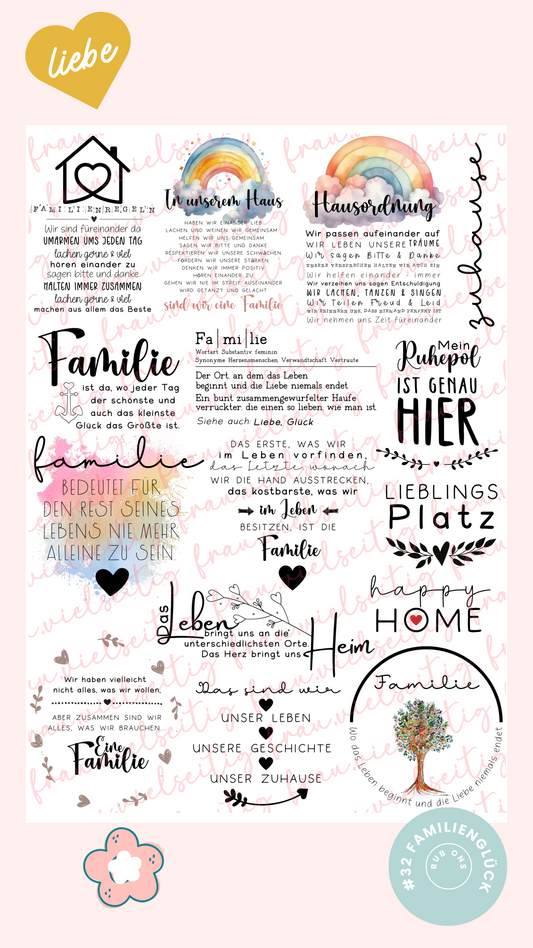 liebe
FAMILIENREGELN
Wir sind füreinander da
UMARMEN UNS JEDEN TAG
lachen gerne & viel
hören einander zu
sagen bitte und danke
HALTEN IMMER ZUSAMMEN
lachen gerne & viel
machen aus allem das Beste
In unserem Haus
HABEN WIR EINANDER LIEB
LACHEN UND WEINEN WIR GEMEINSAM
HELFEN WIR UNS GEMEINSAM
SAGEN WIR BITTE UND DANKE
RESPEKTIEREN WIR UNSERE SCHWÄCHEN
FÖRDERN WIR UNSERE STÄRKEN
DENKEN WIR IMMER POSITIV
HÖREN EINANDER ZU
GEHEN WIR NIE IM STREIT AUSEINANDER
WIRD GETANZT UND GELACHT
sind wir eine Familie
Hausordnung
Wir passen aufeinander auf
WIR LEBEN UNSERE TRÄUME
Wir sagen Bitte & Danke
UNSERE VERSPRECHEN HALTEN WIR AUCH EIN
Wir helfen einander - immer
Wir verzeihen uns sagen Entschuldigung
WIR LACHEN, TANZEN & SINGEN
Wir Teilen Freud & Leid
WIR ERINNERN UNS, DASS NIEMAND PERFEKT IST
Wir nehmen uns Zeit füreinander
zuhause
Familie
ist da, wo jeder Tag
der schönste und
auch das kleinste
Glück das Größte ist.
Fa|mi|lie
Wortart: Substantiv, feminin
Synonyme: Herzensmenschen, Verwandtschaft, Vertraute
Der Ort, an dem das Leben
beginnt und die Liebe niemals endet.
Ein bunt zusammengewürfelter Haufe
verrückter, die einen so lieben, wie man ist.
Siehe auch: Liebe, Glück
Mein
Ruhepol
IST GENAU
HIER
familie
BEDEUTET FÜR
DEN REST SEINES
LEBENS NIE MEHR
ALLEINE ZU SEIN.
DAS ERSTE, WAS WIR
im Leben vorfinden,
das letzte, wonach
WIR DIE HAND AUSSTRECKEN,
das kostbarste, was wir
im Leben
BESITZEN, IST DIE
Familie
LIEBLINGS
Platz
happy
HOME
Das Leben
bringt uns an die
unterschiedlichsten Orte.
Das Herz bringt uns Heim
Wir haben vielleicht
nicht alles, was wir wollen,
ABER ZUSAMMEN SIND WIR
ALLES, WAS WIR BRAUCHEN...
Eine
Familie
Das sind wir
UNSER LEBEN
UNSERE GESCHICHTE
UNSER ZUHAUSE
Familie
Wo das Leben beginnt und die Liebe niemals endet
frau.vielseitig
#32 FAMILIENGLÜCK
RUB ONS